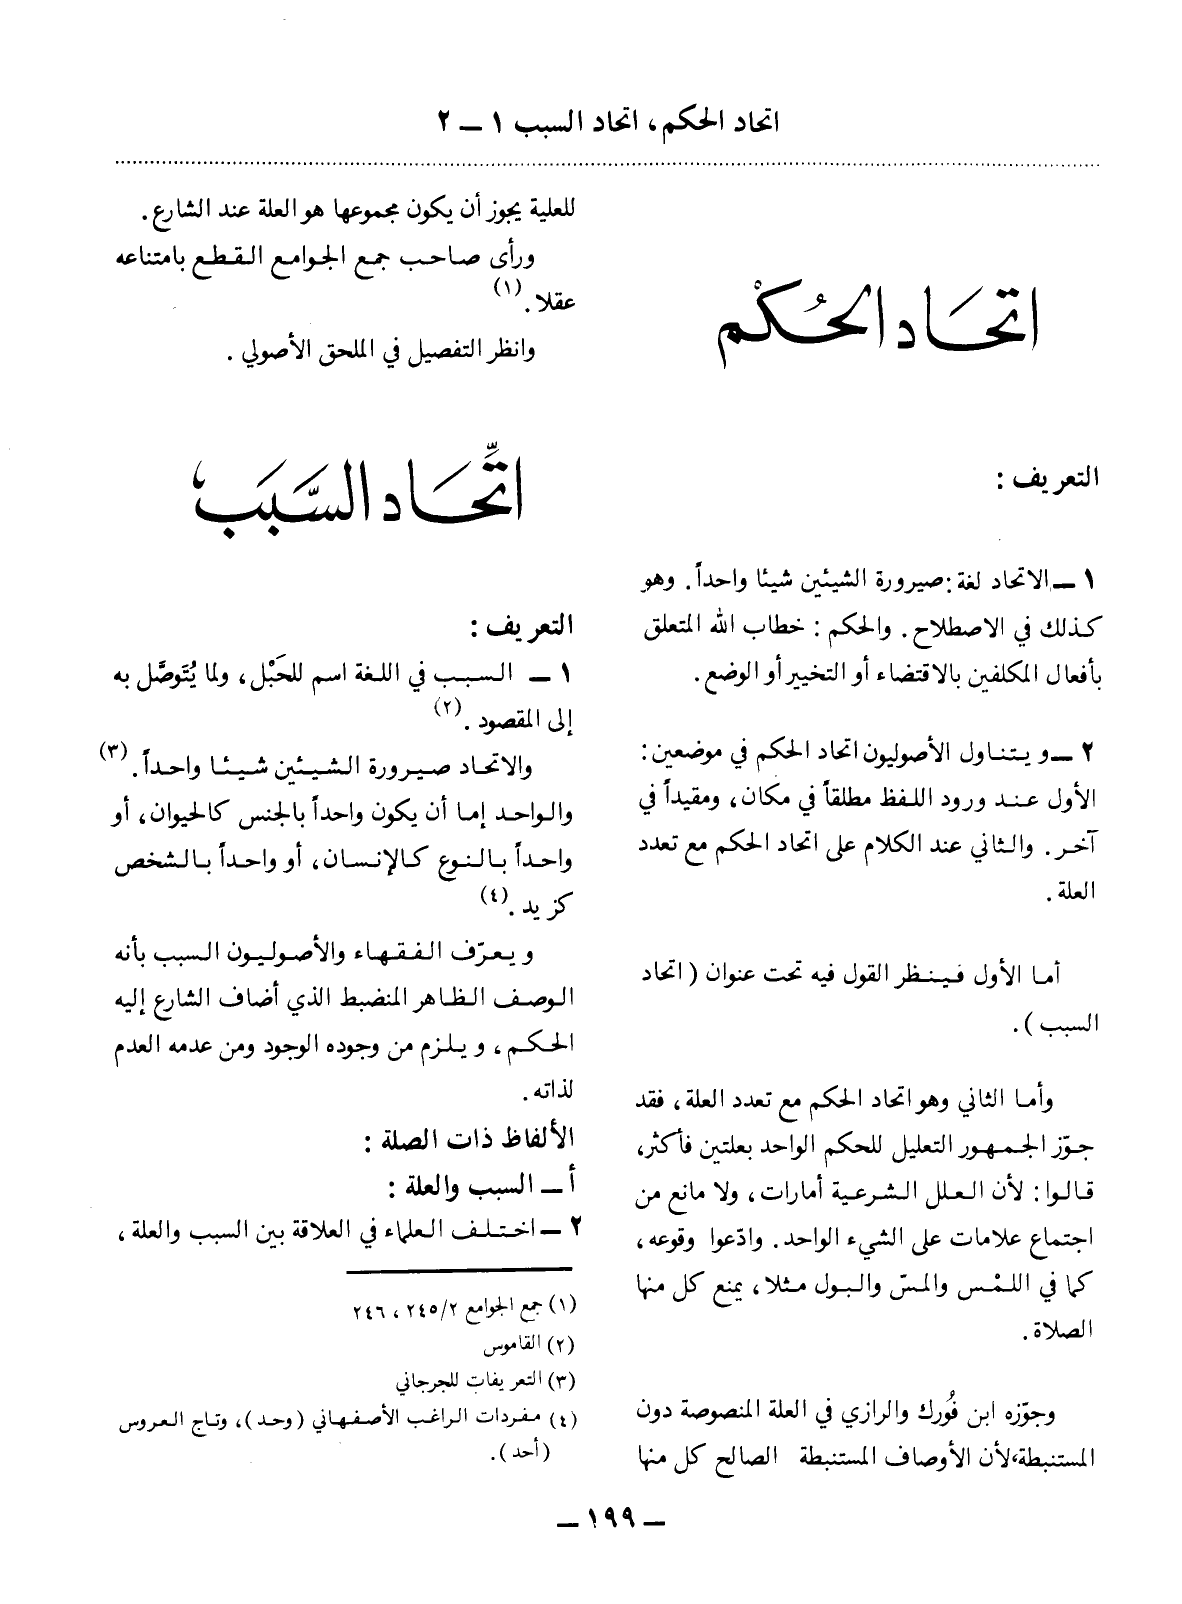 اتحاد الحكم، اتحاد السبب ١ – ٢
اتحاد الحُكْم
التعريف :
١ – الاتحاد لغة : صيرورة الشيئين شيئا واحداً. وهو
كذلك في الاصطلاح. والحكم : خطاب الله المتعلق
بأفعال المكلفين بالاقتضاء أو التخيير أو الوضع.
٢ – ويتناول الأصوليون اتحاد الحكم في موضعين :
الأول عند ورود اللفظ مطلقاً في مكان، ومقيداً في
آخر. والثاني عند الكلام على اتحاد الحكم مع تعدد
العلة .
أما الأول فينظر القول فيه تحت عنوان ( اتحاد
السبب ).
وأما الثاني وهو اتحاد الحكم مع تعدد العلة، فقد
جوّز الجمهور التعليل للحكم الواحد بعلتين فأكثر،
قالوا : لأن العلل الشرعية أمارات، ولا مانع من
اجتماع علامات على الشيء الواحد. وادّعوا وقوعه،
كما في اللمْس والمسّ والبول مثلا، يمنع كل منها
الصلاة .
وجوّزه ابن فُورك والرازي في العلة المنصوصة دون
المستنبطة، لأن الأوصاف المستنبطة الصالح كل منها
للعلية يجوز أن يكون مجموعها هو العلة عند الشارع .
ورأى صاحب جمع الجوامع القطع بامتناعه
عقلا . (١)
وانظر التفصيل في الملحق الأصولي .
اتِّحاد السَّبَب
التعريف :
١ – السبب في اللغة اسم للحَبْل، ولما يُتَوصَّل به
إلى المقصود . (٢)
والاتحاد صيرورة الشيئين شيئا واحداً. (٣)
والواحد إما أن يكون واحداً بالجنس كالحيوان، أو
واحداً بالنوع كالإنسان، أو واحداً بالشخص
كزيد . (٤)
ويعرّف الفقهاء والأصوليون السبب بأنه
الوصف الظاهر المنضبط الذي أضاف الشارع إليه
الحكم، ويلزم من وجوده الوجود ومن عدمه العدم
لذاته .
الألفاظ ذات الصلة :
أ – السبب والعلة :
٢ – اختلف العلماء في العلاقة بين السبب والعلة ،
(١) جمع الجوامع ٢/ ٢٤٥ ، ٢٤٦
(٢) القاموس
(٣) التعريفات للجرجاني
(٤) مفردات الراغب الأصفهاني ( وحد ) ، وتاج العروس
( أحد ) .
– ١٩٩ –